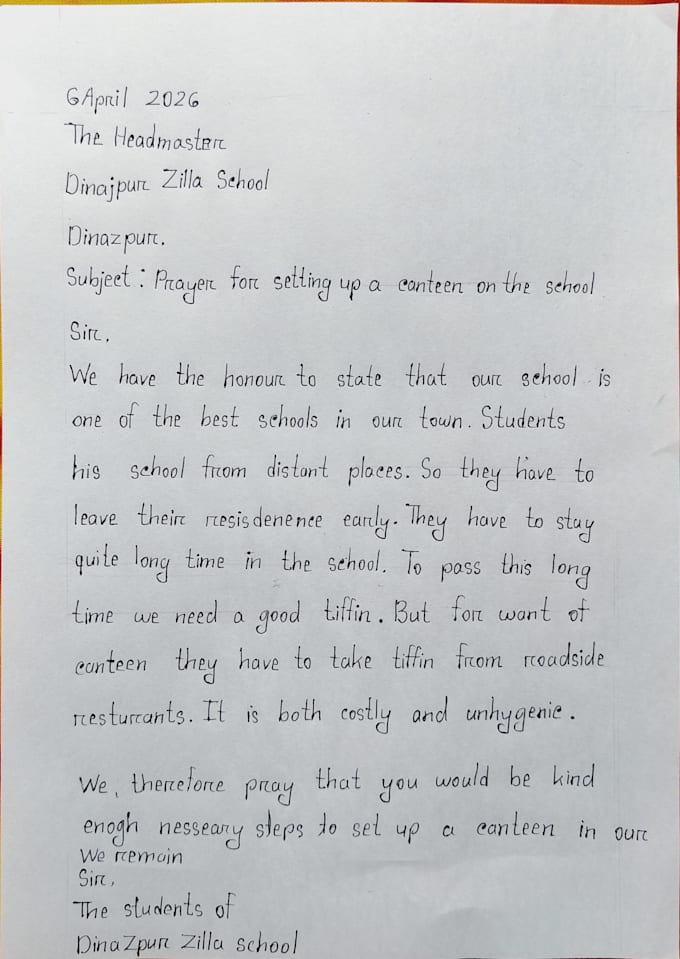 6 April 2026
The Headmaster
Dinajpur Zilla School
Dinazpur.
Subject : Prayer for setting up a canteen on the school
Sir,
We have the honour to state that our school is
one of the best schools in our town. Students
his school from distant places. So they have to
leave their resisdenence early. They have to stay
quite long time in the school. To pass this long
time we need a good tiffin. But for want of
canteen they have to take tiffin from roadside
resturants. It is both costly and unhygenie.
We, therefore pray that you would be kind
enogh nesseary steps to set up a canteen in our
We remain
Sir,
The students of
DinaZpur Zilla school